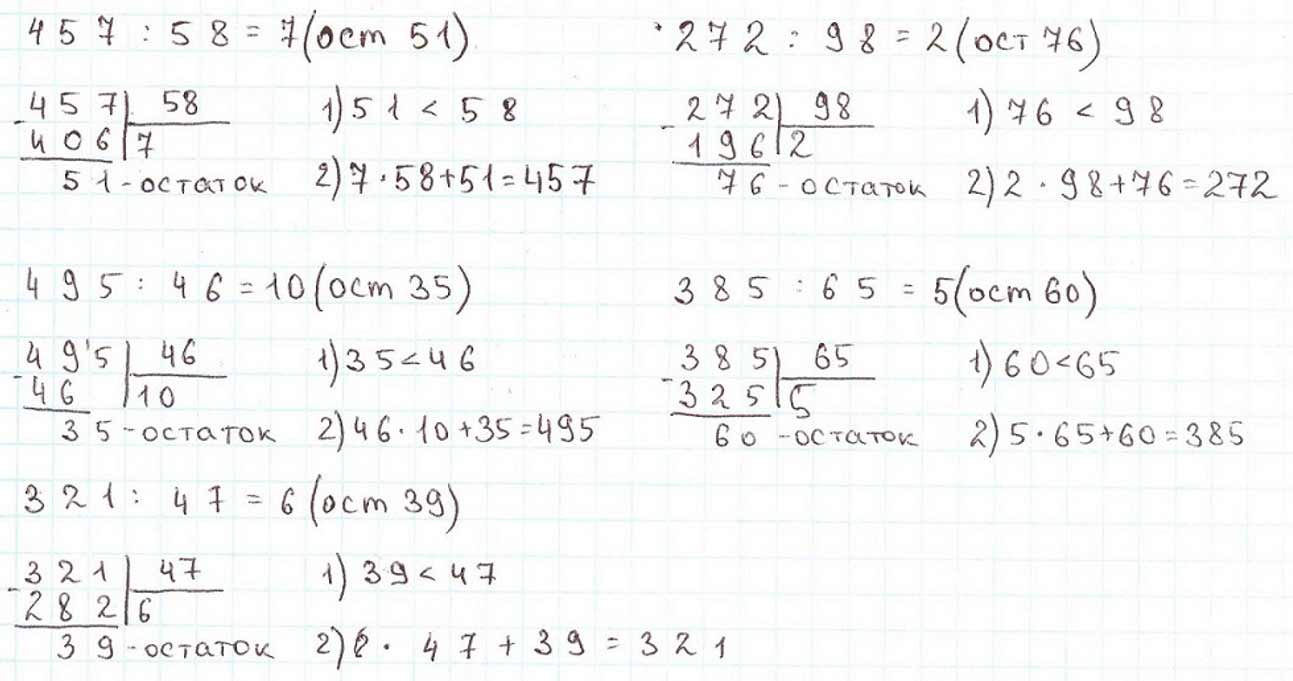 457 : 58 = 7 (ост 51)
457 58
- 406 7
51 - остаток
1) 51 < 58
2) 7 · 58 + 51 = 457
272 : 98 = 2 (ост 76)
272 98
- 196 2
76 - остаток
1) 76 < 98
2) 2 · 98 + 76 = 272
495 : 46 = 10 (ост 35)
495 46
- 46 10
35 - остаток
1) 35 < 46
2) 46 · 10 + 35 = 495
385 : 65 = 5 (ост 60)
385 65
- 325 5
60 - остаток
1) 60 < 65
2) 5 · 65 + 60 = 385
321 : 47 = 6 (ост 39)
321 47
- 282 6
39 - остаток
1) 39 < 47
2) 6 · 47 + 39 = 321